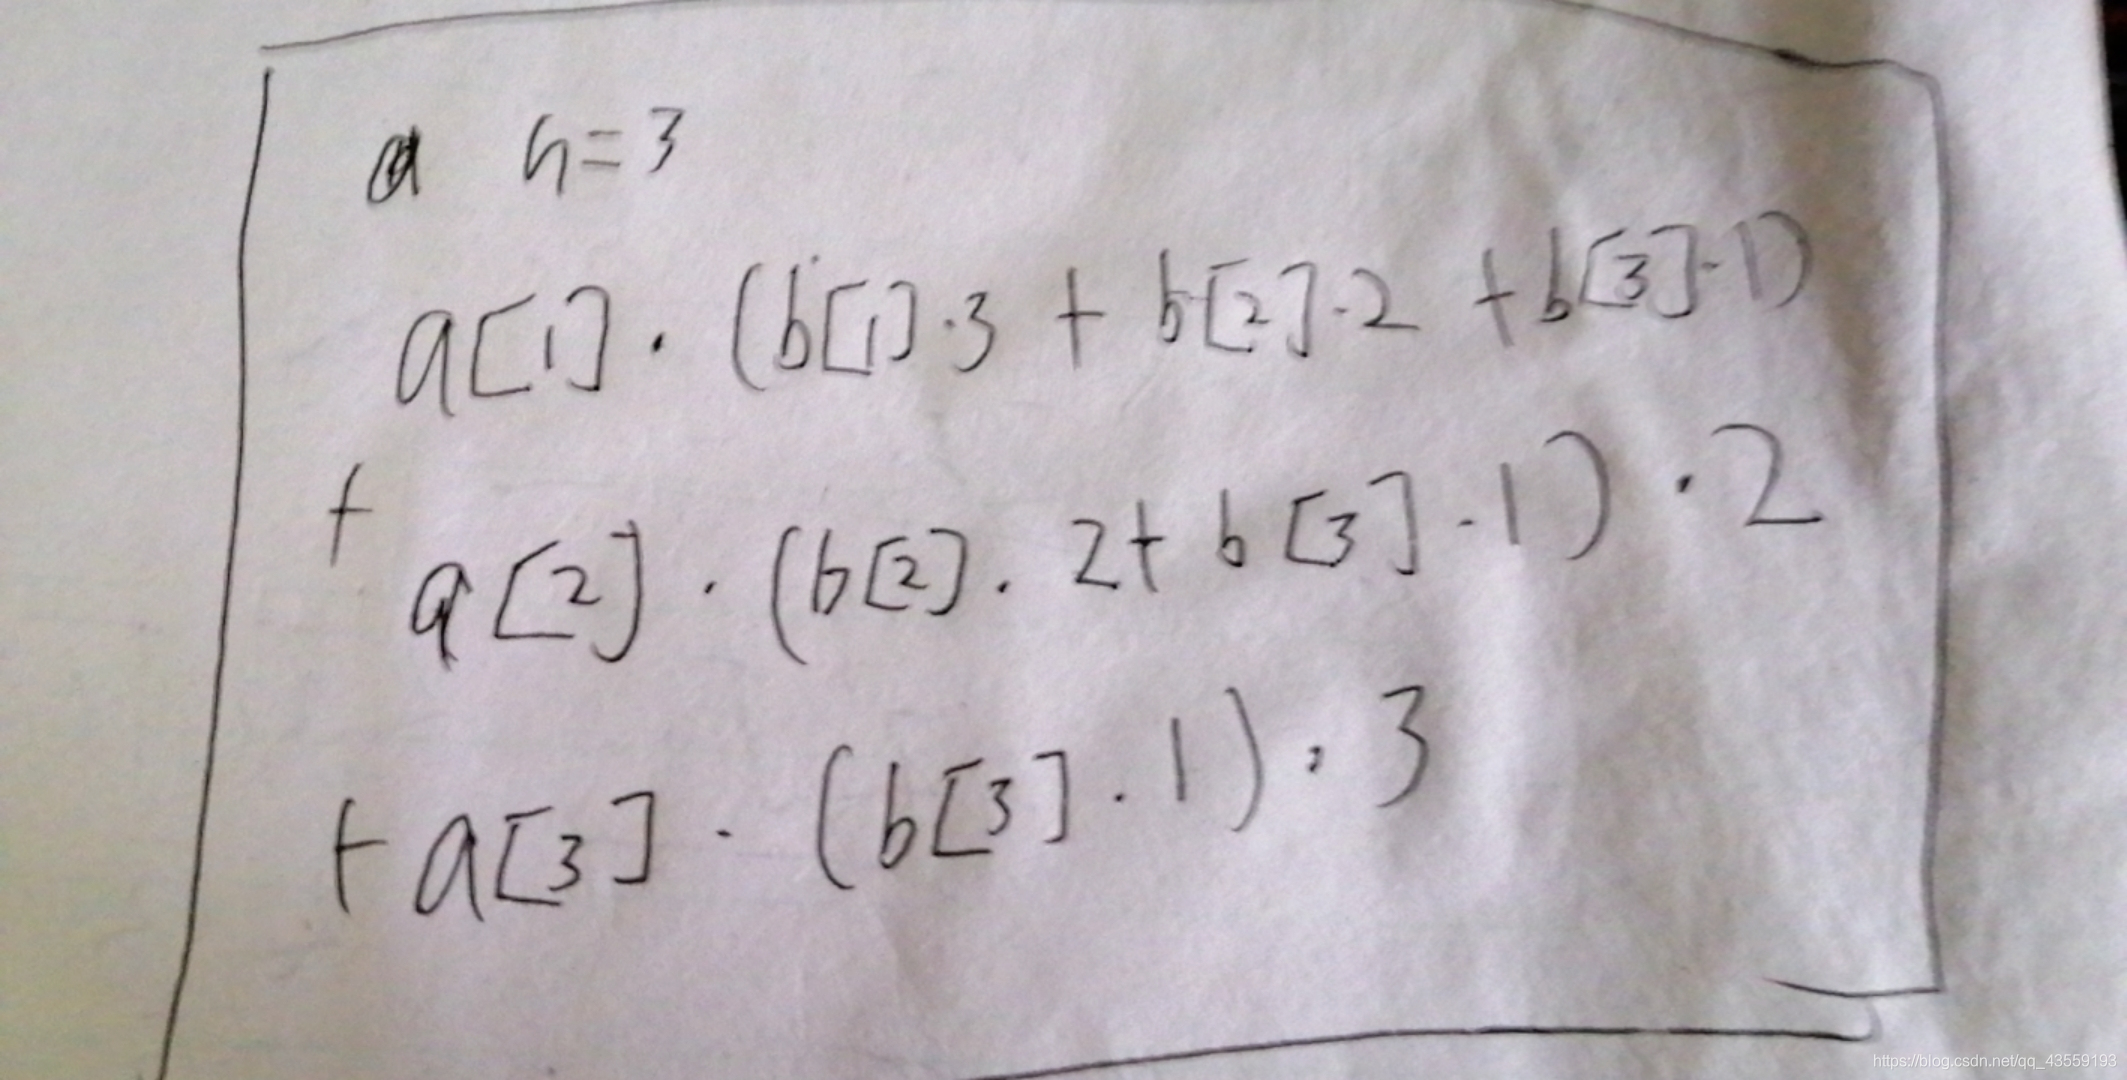 a n=3
a[1]·(b[1]·3+b[2]·2+b[3]·1)
+a[2]·(b[2]·2+b[3]·1)·2
+a[3]·(b[3]·1)·3
https://blog.csdn.net/qq_43559193